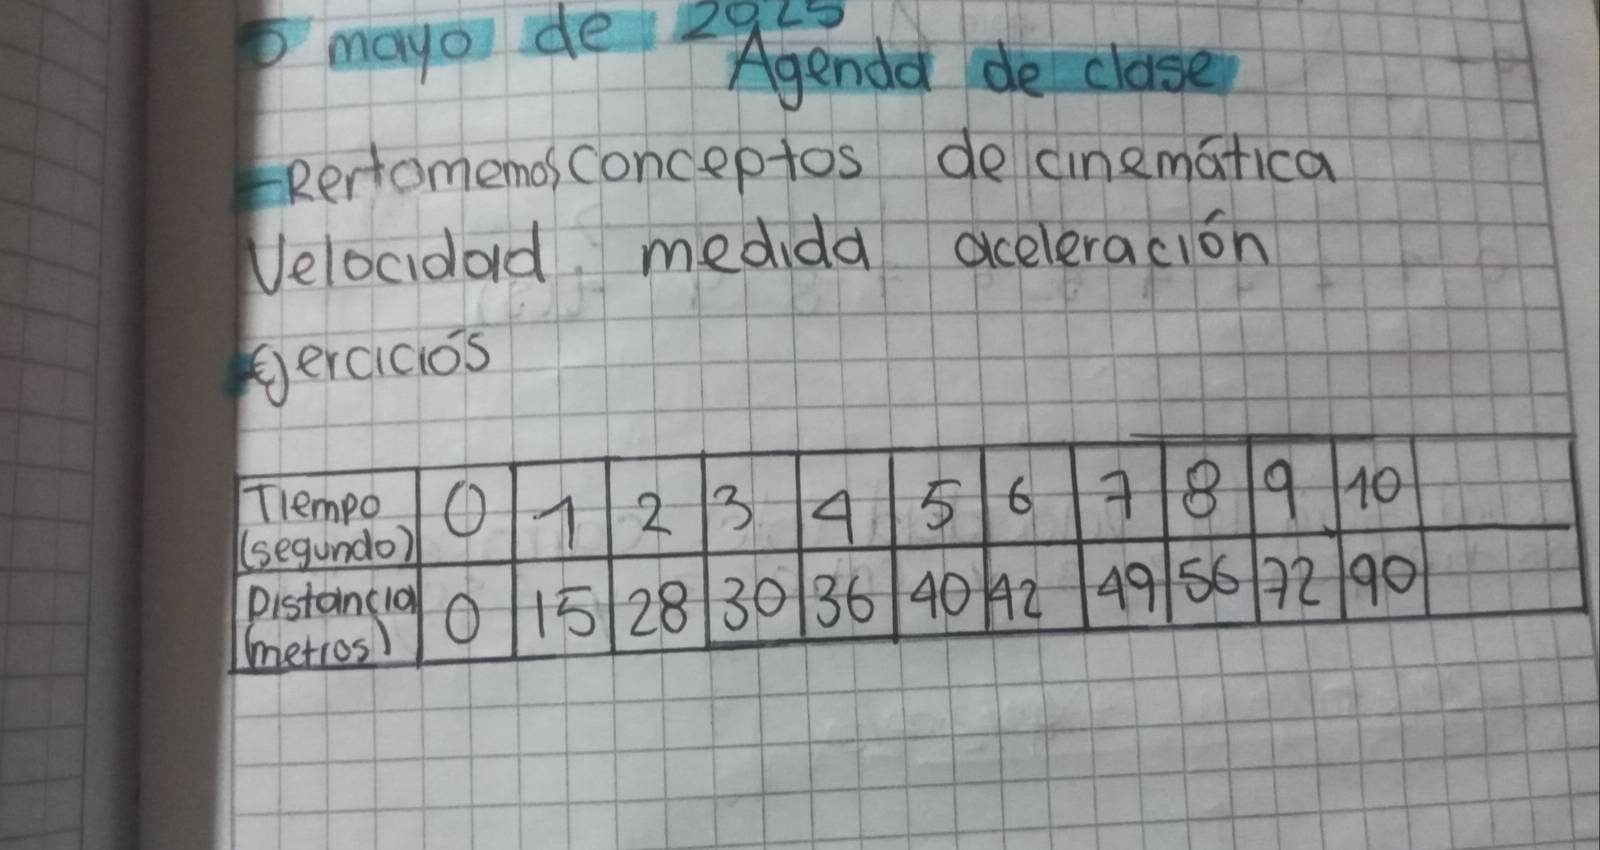 5 mayo de 2025
Agenda de clase
-Rertomemos conceptos de cinemática
Velocidad medida aceleración
ejerciciós
Tiempo (segundo) 0 1 2 3 4 5 6 7 8 9 10
Distancia (metros) 0 15 28 30 36 40 42 49 56 72 90